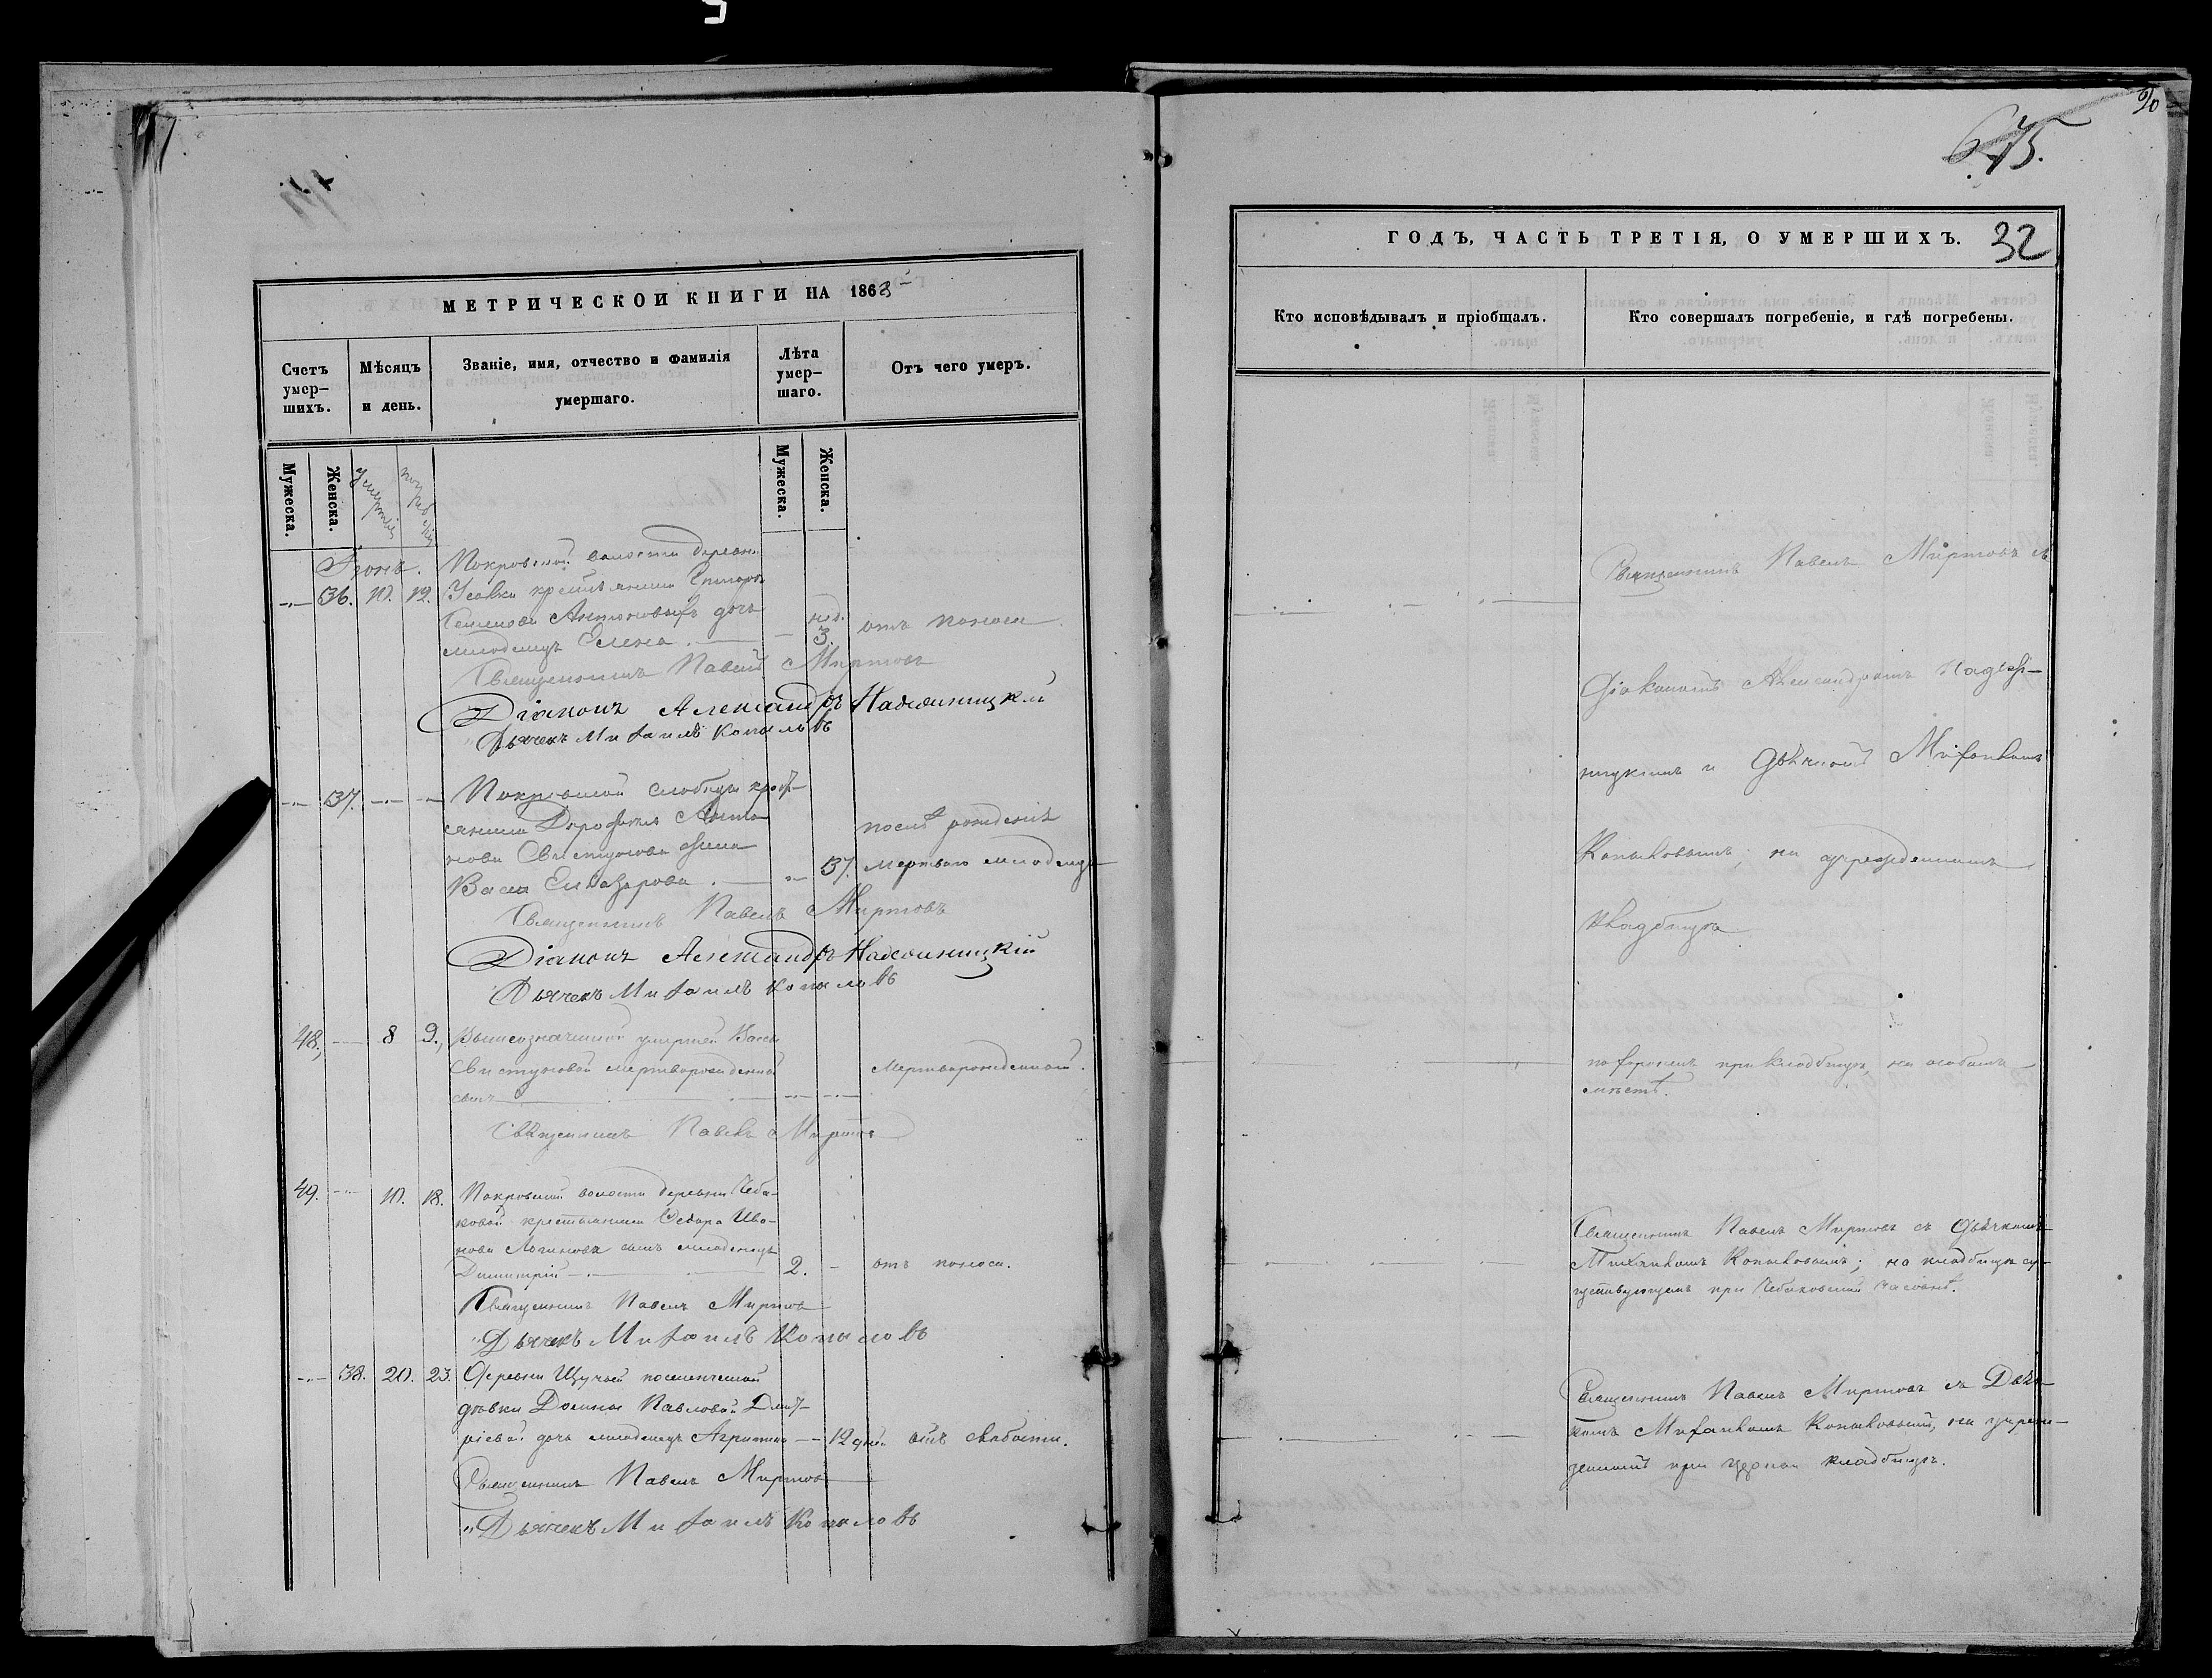 МЕТРИЧЕСКОЙ КНИГИ НА 1863
Счетъ умер-
шихъ.
Мѣсяцъ
и день.
Званіе, имя, отчество и фамилія
умершаго.
Лѣта
умер-
шаго.
Отъ чего умеръ.
Мужеска.
Женска.
умертія
погребенія
Мужеска.
Женска.
Іюнь.
Покровской волости деревни
36. 10. 12. Усовки крестьянина
Антоновыхъ дочь нед.
младенецъ Елена 3. отъ поноса
Священникъ Павелъ Миртовъ
Діаконъ Александръ Надеждницкій
Дьячекъ Михаилъ Копыловъ
37. Покровской слободы крест-
янина Дорофея Анто-
нова Свистунова жена послѣ рожденія
Васса Елеазарова 37. мертваго младенца
Священникъ Павелъ Миртовъ
Діаконъ Александръ Надеждницкій
Дьячекъ Михаилъ Копыловъ
48. 8 9. Вышеозначенной умершей Вассы
Свистуновой мертворожденный Мертворожденный.
сынъ
Священникъ Павелъ Миртовъ
49. 10. 18. Покровской волости деревни Чеба-
ковой крестьянина Ѳедора Ива-
нова Логинова сынъ младенецъ
Димитрій 2. отъ поноса.
Священникъ Павелъ Миртовъ
Дьячекъ Михаилъ Копыловъ
38. 20. 23. Деревни Щучьей поселенческой
дѣвки Домны Павловой Дмит-
ріевой дочь младенецъ Агриппина 12 дней отъ слабости.
Священникъ Павелъ Миртовъ
Дьячекъ Михаилъ Копыловъ
675.
32
ГОДЪ, ЧАСТЬ ТРЕТІЯ, О УМЕРШИХЪ.
Кто исповѣдывалъ и пріобщалъ.
Кто совершалъ погребеніе, и гдѣ погребены.
Священникъ Павелъ Миртовъ съ
Діакономъ Александромъ Надежд-
ницкимъ и Дьячкомъ Михаиломъ
Копыловымъ; на учрежденномъ
кладбищѣ
похороненъ при кладбищѣ, на особомъ
мѣстѣ.
Священникъ Павелъ Миртовъ съ Дьячкомъ
Михаиломъ Копыловымъ; на кладбищѣ су-
ществующемъ при Чебаковской часовнѣ.
Священникъ Павелъ Миртовъ съ Дьяч-
комъ Михаиломъ Копыловымъ, на учреж-
денномъ при церкви кладбищѣ.